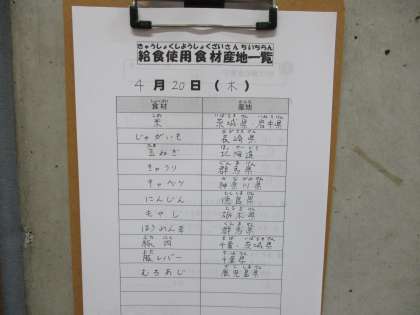 きゅうしょくしようしょくざいさんちいちらん
給食使用食材産地一覧
4月20日(木)
食材 産地
米 茨城県 岩手県
じゃがいも 長崎県
玉ねぎ 北海道
きゅうり 群馬県
キャベツ 神奈川県
にんじん 徳島県
もやし 栃木県
ほうれん草 群馬県
豚肉 千葉、茨城県
豚レバー 千葉県
むろあじ 鹿児島県